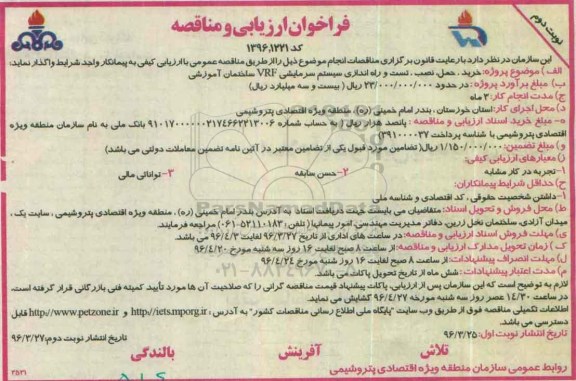 نوبت دوم
فراخوان ارزیابی و مناقصه
کد ۱۳۹۶.۱۲۲۱
این سازمان در نظر دارد با رعایت قانون برگزاری مناقصات انجام موضوع ذیل را از طریق مناقصه عمومی با ارزیابی کیفی به پیمانکار واجد شرایط واگذار نماید:
الف) موضوع پروژه: خرید، حمل، نصب، تست و راه اندازی سیستم سرمایشی VRF ساختمان آموزشی
ب) مبلغ برآورد پروژه: در حدود ۲۳/۰۰۰/۰۰۰/۰۰۰ ریال ( بیست و سه میلیارد ریال)
ج) مدت انجام کار: ۳ ماه
د) محل اجرای کار: استان خوزستان، بندر امام خمینی (ره)، منطقه ویژه اقتصادی پتروشیمی
ه) مبلغ خرید اسناد ارزیابی و مناقصه: پانصد هزار ریال ( به حساب شماره ۰۲۱۷۴۶۶۲۲۱۳۰۰۶ بانک ملی به نام سازمان منطقه ویژه
اقتصادی پتروشیمی با شناسه پرداخت ۳۹۱۰۰۰۰۳۷)
و) مبلغ تضمین: ۱/۱۵۰/۰۰۰/۰۰۰ ریال( تضامین مورد قبول یکی از تضامین معتبر در آئین نامه تضمین معاملات دولتی می باشد)
ز) معیارهای ارزیابی کیفی:
۱- تجربه در کار مشابه ۲- حسن سابقه ۳- توانائی مالی
ح) حداقل شرایط پیمانکاران:
۱- داشتن شخصیت حقوقی، کد اقتصادی و شناسه ملی
ط) محل فروش و تحویل اسناد: متقاضیان می بایست جهت دریافت اسناد به آدرس بندر امام خمینی (ره)، منطقه ویژه اقتصادی پتروشیمی، سایت یک،
میدان آزادی، ساختمان نخل زرین، دفاتر مدیریت مهندسی، امور پیمانها ( تلفن: ۵۲۱۱۰۱۸۳-۰۶۱) مراجعه فرمایند.
ی) مهلت فروش اسناد ارزیابی و مناقصه: در ساعت های اداری از تاریخ ۹۶/۳/۲۷ لغایت ۹۶/۴/۳ می باشد.
ک) زمان تحویل مدارک ارزیابی و مناقصه: از ساعت ۸ صبح لغایت ۱۶ روز سه شنبه مورخ ۹۶/۴/۲۰
ل) مهلت انصراف پیشنهادات: از ساعت ۸ صبح لغایت ۱۶ روز شنبه مورخ ۹۶/۴/۲۴
م) مدت اعتبار پیشنهادات: شش ماه از تاریخ تحویل پاکات می باشد.
لازم به توضیح است که این سازمان پس از ارزیابی، پاکات پیشنهاد قیمت مناقصه گرانی را که صلاحیت آن ها مورد تأیید کمیته فنی بازرگانی قرار گرفته است،
در ساعت ۱۴/۳۰ عصر روز سه شنبه مورخه ۹۶/۴/۲۷ گشایش می نماید.
اطلاعات تکمیلی مناقصه فوق از طریق وب سایت "پایگاه ملی اطلاع رسانی مناقصات کشور" به آدرس: http://iets.mporg.ir و http://www.petzone.ir قابل
دسترسی می باشد.
تاریخ انتشار نوبت اول: ۹۶/۳/۲۵ تاریخ انتشار نوبت دوم: ۹۶/۳/۲۷
تلاش آفرینش بالندگی
روابط عمومی سازمان منطقه ویژه اقتصادی پتروشیمی
۲۵۳۱
ParsNamadData